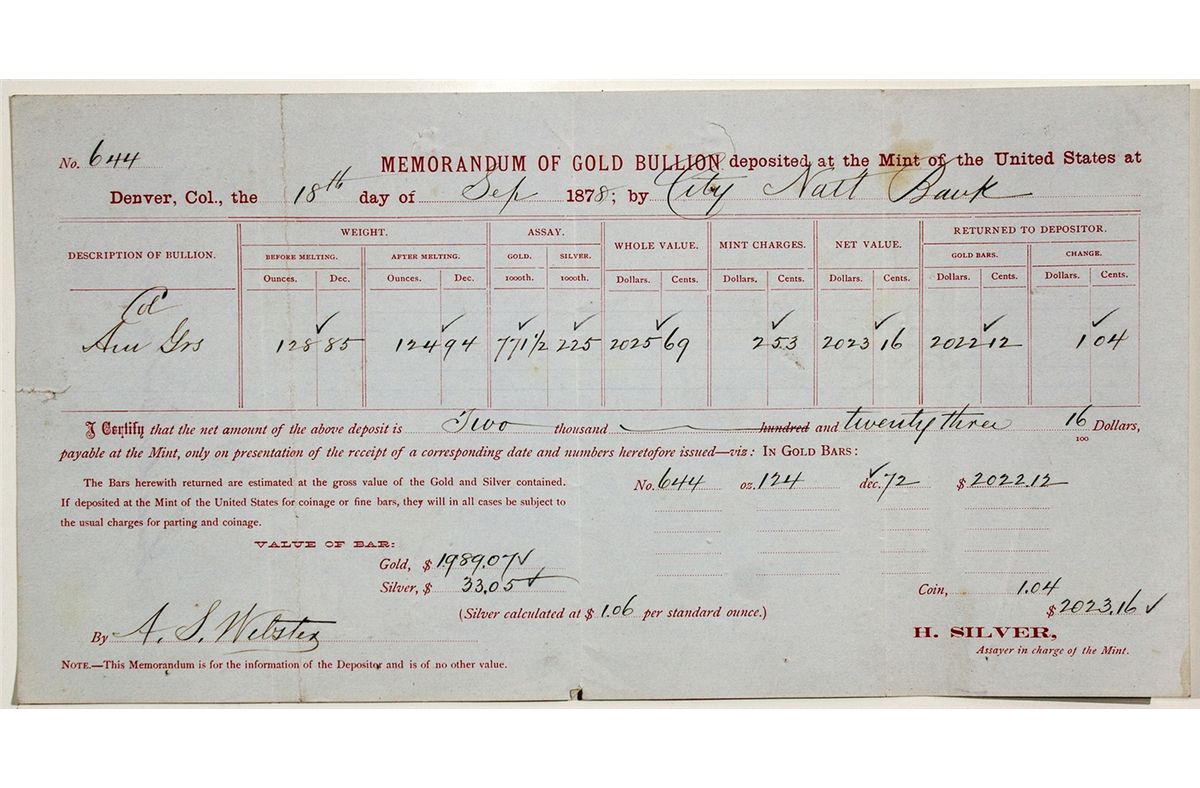 No. 644
MEMORANDUM OF GOLD BULLION deposited at the Mint of the United States at
Denver, Col., the 18th day of Sep 1878; by City Natl Bank
DESCRIPTION OF BULLION. WEIGHT. ASSAY. WHOLE VALUE. MINT CHARGES. NET VALUE. RETURNED TO DEPOSITOR.
BEFORE MELTING. AFTER MELTING. GOLD. SILVER. GOLD BARS. CHANGE.
Ounces. Dec. Ounces. Dec. 1000th. 1000th. Dollars. Cents. Dollars. Cents. Dollars. Cents. Dollars. Cents. Dollars. Cents.
Col
Am Grs 128 85 124 94 771 1/2 225 2025 69 2 53 2023 16 2022 12 1 04
I Certify that the net amount of the above deposit is Two thousand hundred and twenty three 16/100 Dollars,
payable at the Mint, only on presentation of the receipt of a corresponding date and numbers heretofore issued—viz: IN GOLD BARS:
The Bars herewith returned are estimated at the gross value of the Gold and Silver contained.
If deposited at the Mint of the United States for coinage or fine bars, they will in all cases be subject to
the usual charges for parting and coinage.
No. 644 oz. 124 dec. 72 $ 2022.12
VALUE OF BAR:
Gold, $ 1989.07
Silver, $ 33.05
(Silver calculated at $ 1.06 per standard ounce.)
Coin, 1.04
$ 2023.16
By A. S. Webster
H. SILVER,
Assayer in charge of the Mint.
NOTE.—This Memorandum is for the information of the Depositor and is of no other value.